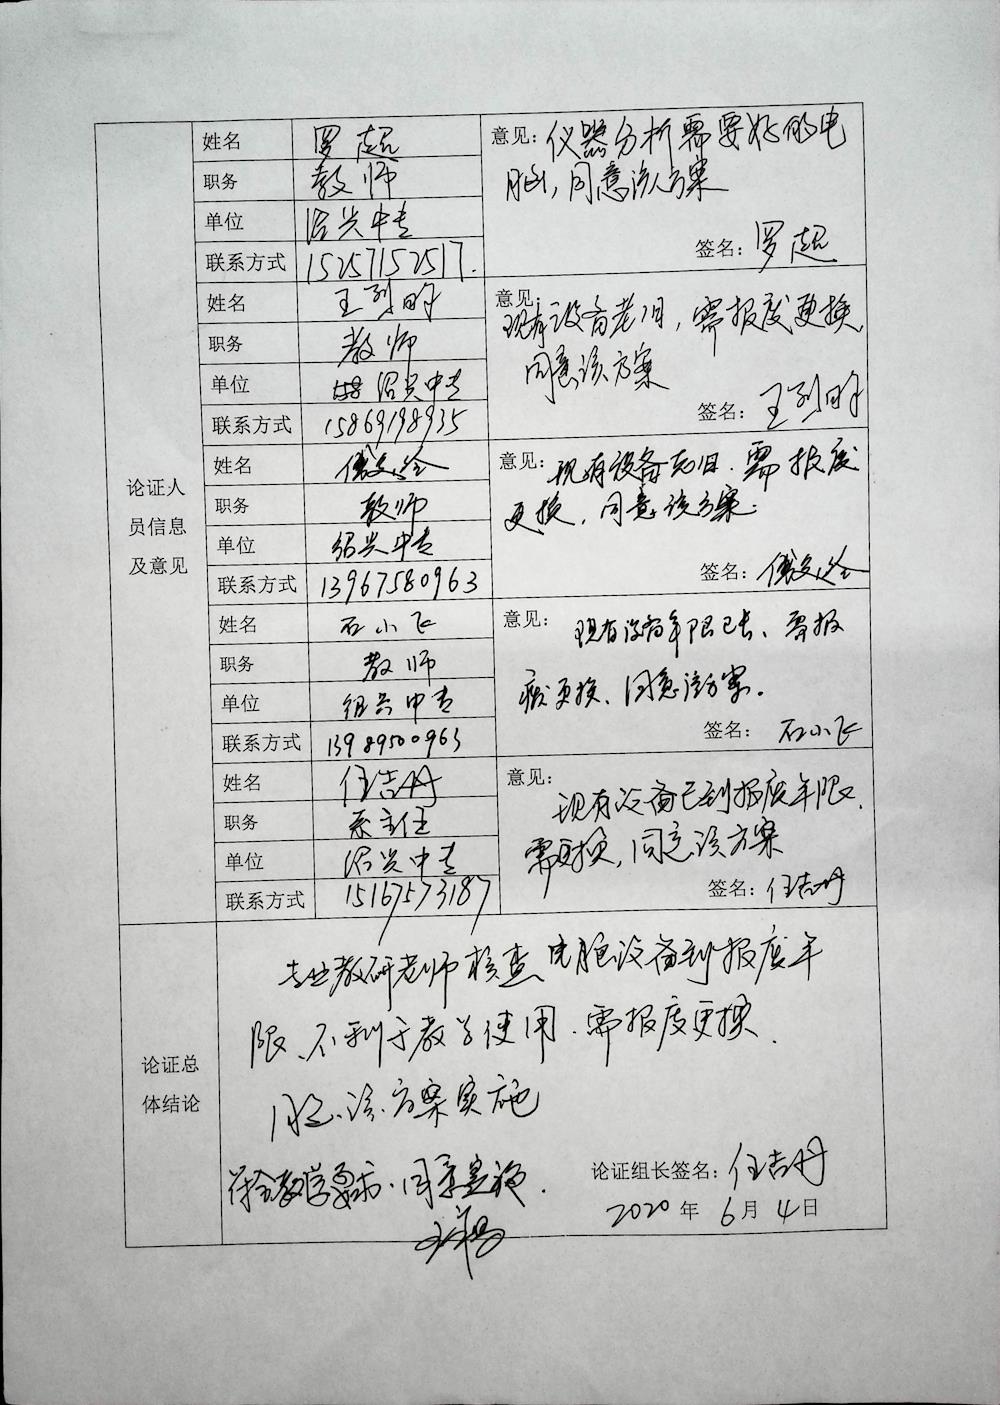 论证人
员信息
及意见
姓名 罗超
职务 教师
单位 绍兴中专
联系方式 15257152517.
意见：仪器分析需要好的电
脑，同意该方案
签名：罗超
姓名 王烈明
职务 教师
单位 绍兴中专
联系方式 15869198935
意见：
现有设备老旧，需报废更换，
同意该方案
签名：王烈明
姓名
职务 教师
单位 绍兴中专
联系方式 13967580963
意见：现有设备老旧．需报废
更换，同意该方案．
签名：
姓名 石小飞
职务 教师
单位 绍兴中专
联系方式 13989500963
意见：现有设备年限已去、需报
废更换、同意该方案．
签名：石小飞
姓名 任吉丹
职务 系主任
单位 绍兴中专
联系方式 15167573187
意见：
现有设备已到报废年限．
需更换，同意该方案
签名：任吉丹
论证总
体结论
专业教研老师核查电脑设备到报废年
限、不利于教学使用．需报废更换．
同意该方案实施
符合教学要求．同意实施．
论证组长签名：任吉丹
2020年6月4日